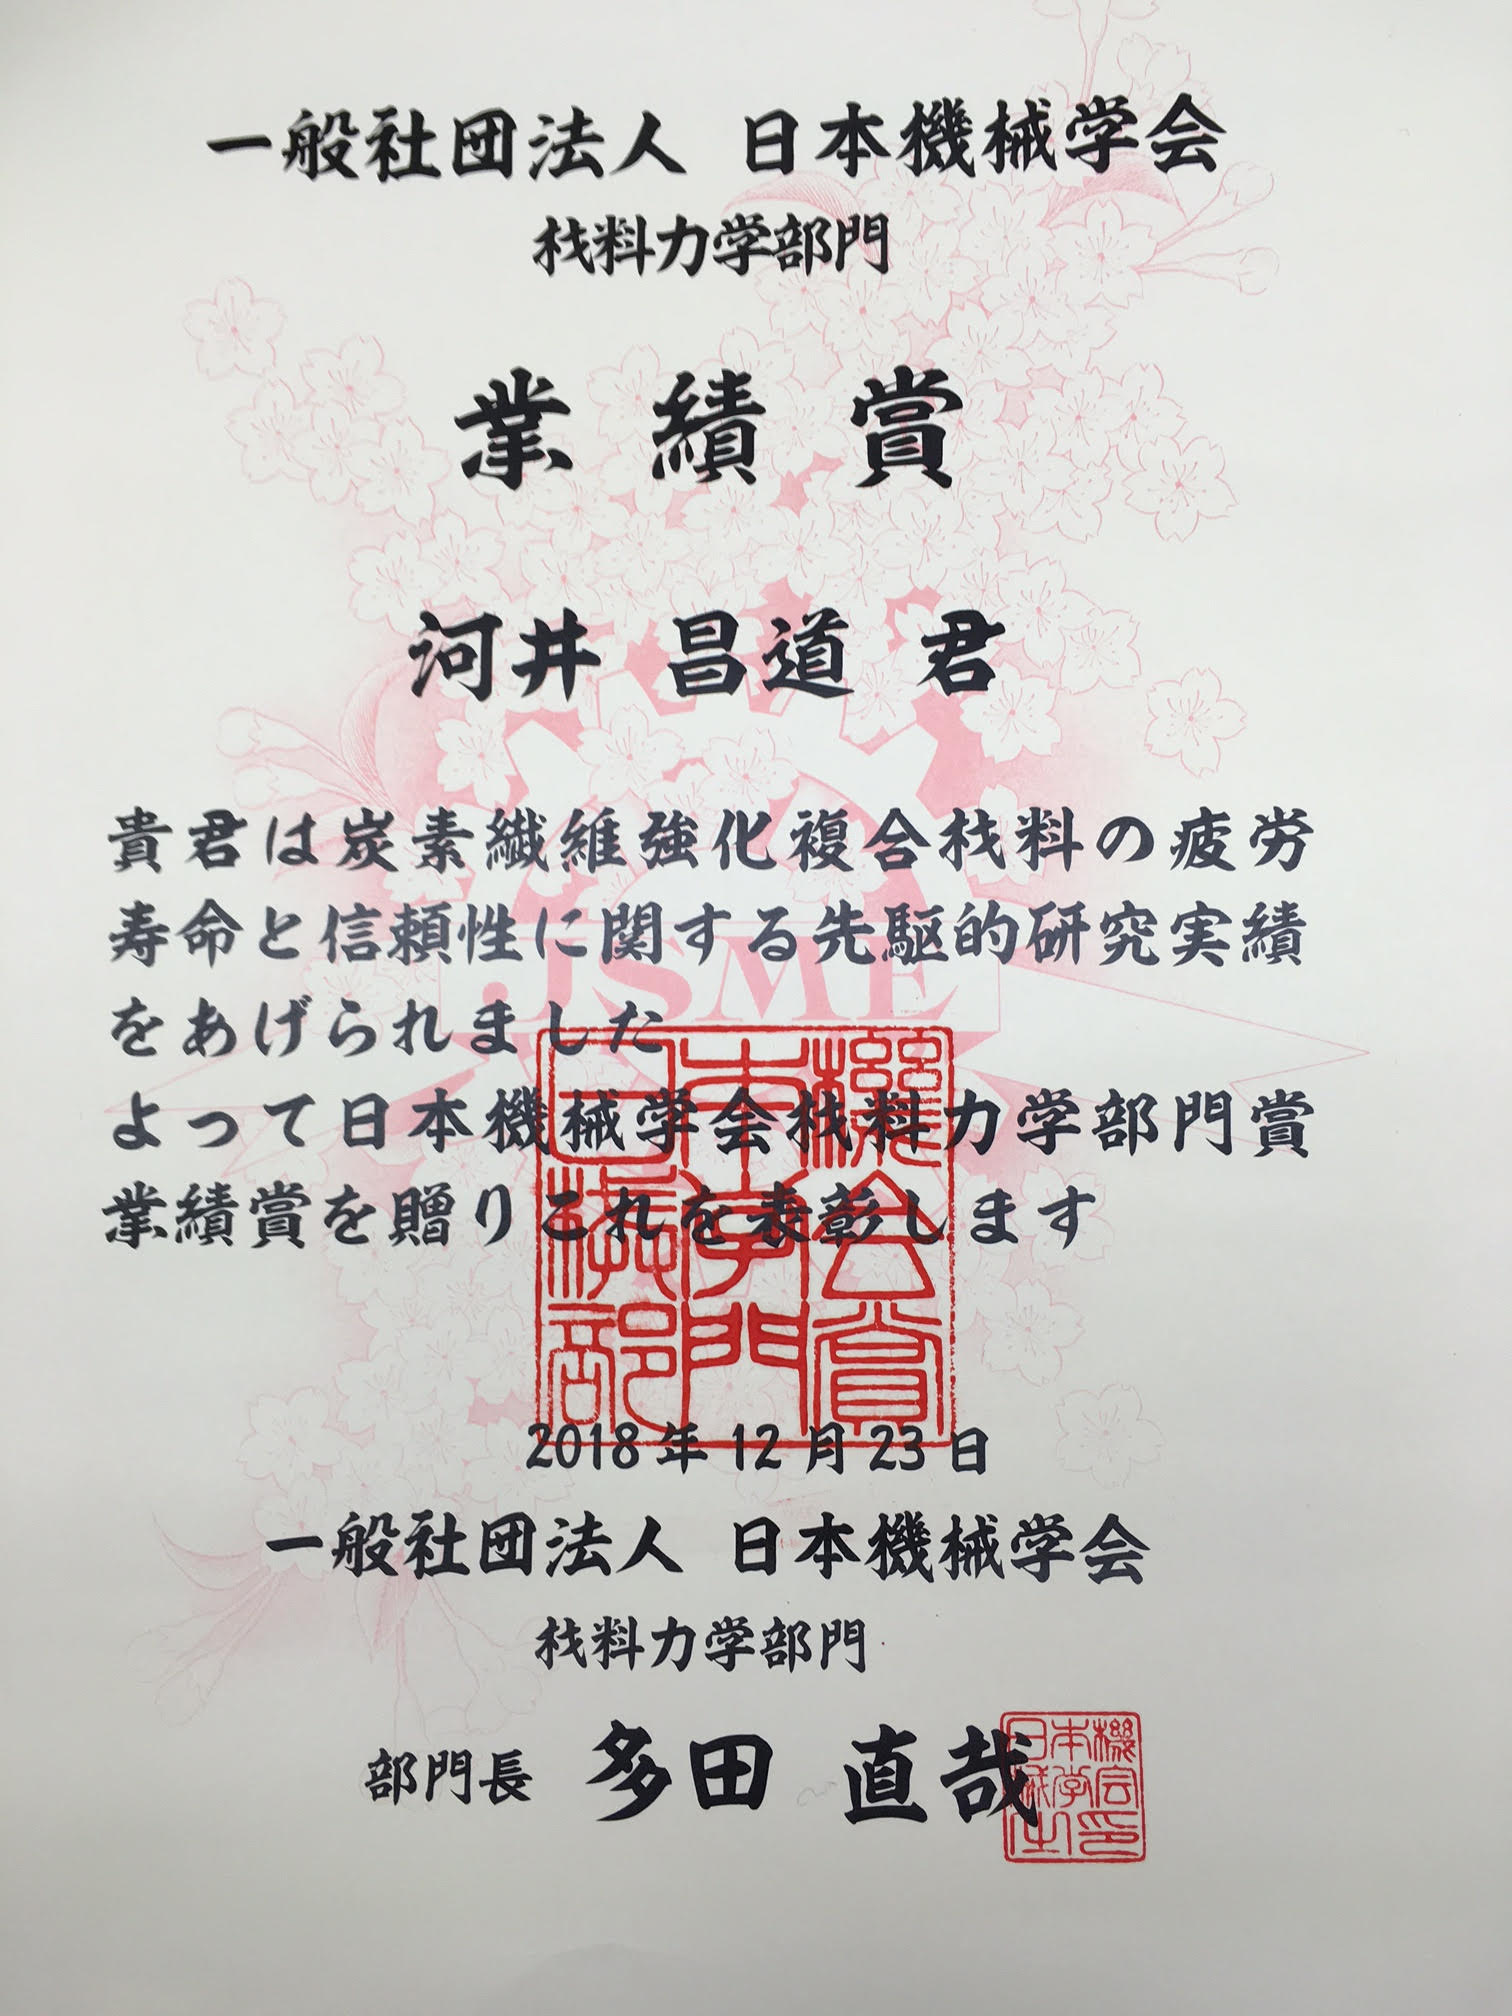 一般社団法人 日本機械学会
材料力学部門
業績賞
河井 昌道 君
貴君は炭素繊維強化複合材料の疲労
寿命と信頼性に関する先駆的研究実績
をあげられました
よって日本機械学会材料力学部門賞
業績賞を贈りこれを表彰します
JSME
2018年12月23日
一般社団法人 日本機械学会
材料力学部門
部門長 多田 直哉